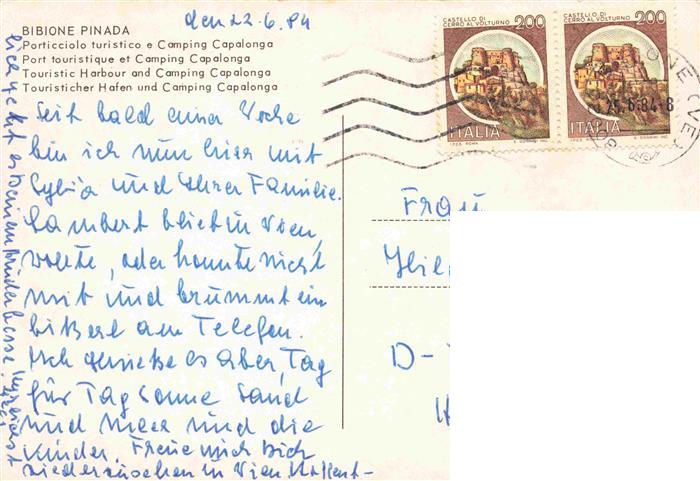 den 22.6.84
BIBIONE PINADA
Porticciolo turistico e Camping Capalonga
Port touristique et Camping Capalonga
Touristic Harbour and Camping Capalonga
Touristischer Hafen und Camping Capalonga
Seit bald einer Woche
bin ich nun hier mit
Sylvia und Ihrer Familie.
Lambert blieb in Wien,
wollte, oder konnte nicht
mit und brummt ein
bißerl am Telefon.
Ich genieße es aber, Tag
für Tag Sonne Sand
und Meer und die
Kinder. Freue mich Dich
wiederzusehen in Wien. Hoffent-
lich geht es Deinem Bruder besser.
CASTELLO DI
CERRO AL VOLTURNO
200
ITALIA
CASTELLO DI
CERRO AL VOLTURNO
200
ITALIA
25.6.84-8
Frau
D-